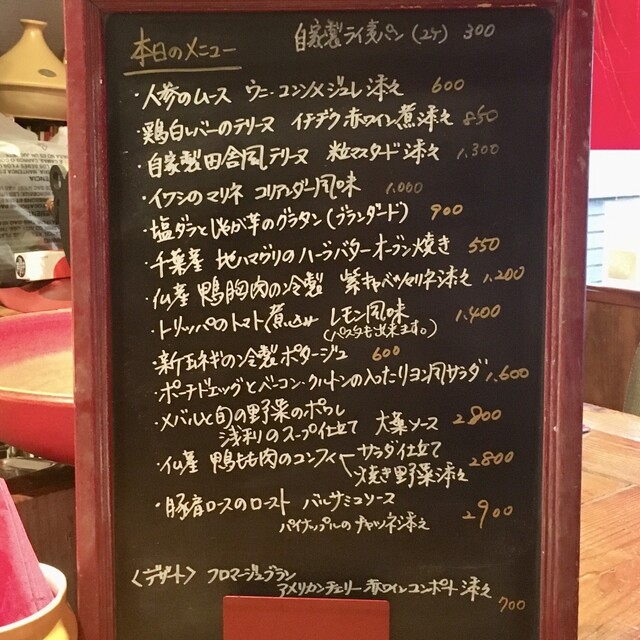 自家製ライ麦パン(2ケ) 300
本日のメニュー
・人参のムース ウニ・コンソメジュレ添え 600
・鶏白レバーのテリーヌ イチヂク赤ワイン煮添え 850
・自家製田舎風テリーヌ 粒マスタード添え 1,300
・イワシのマリネ コリアンダー風味 1,000
・塩ダラとじゃが芋のグラタン(ブランダード) 900
・千葉産 地ハマグリのハーブバターオーブン焼き 550
・仏産 鴨胸肉の冷製 紫キャベツマリネ添え 1,200
・トリッパのトマト煮込み レモン風味 1,400
(パスタも出来ます。)
・新玉ネギの冷製ポタージュ 600
・ポーチドエッグとベーコン・クルトンの入ったリヨン風サラダ 1,600
・メバルと旬の野菜のポワレ
浅利のスープ仕立て 大葉ソース 2800
・仏産 鴨もも肉のコンフィ サラダ仕立て
焼き野菜添え 2800
・豚肩ロースのロースト バルサミコソース
パイナップルのチャツネ添え 2900
〈デザート〉 フロマージュブラン
アメリカンチェリー赤ワインコンポート添え
700